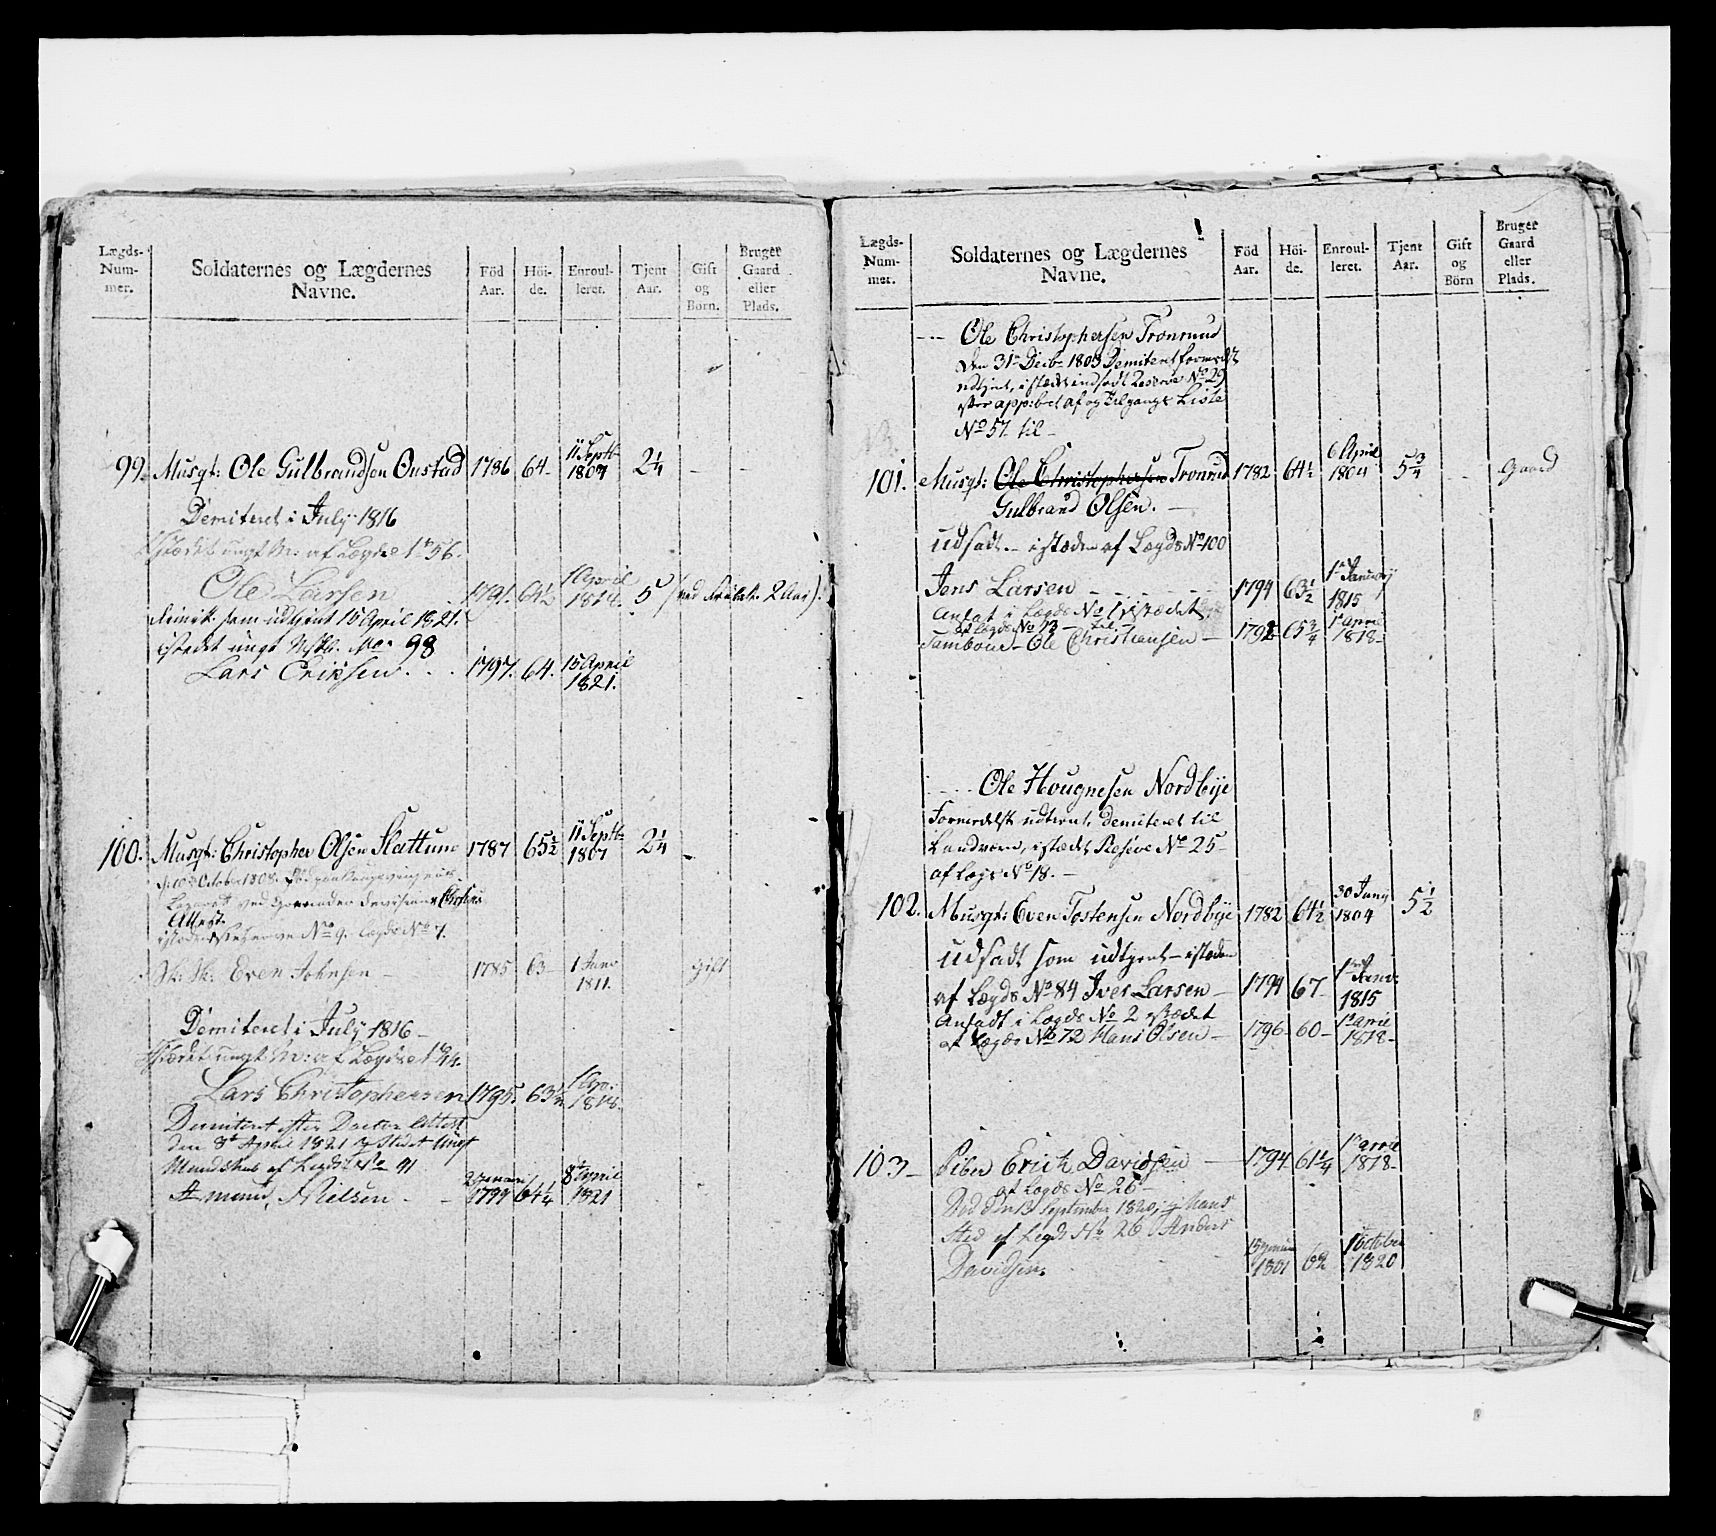 Lægds-
Num-
mer.
Soldaternes og Lægdernes
Navne.
Föd
Aar.
Höi-
de.
Enroul-
leret.
Tjent
Aar.
Gift
og
Börn.
Bruger
Gaard
eller
Plads.
99. Musqt: Ole Gulbrandsen Onstad 1786 64 - 11 Septb 1807 2 1/4 - -
Demiteret i July 1816
istædet ungt M: af Lægde No 56.
Ole Larsen 1791. 64 1/2 1 April 1814. 5 (ved 2 Aar).
som udtient 15 April 1821.
istedet ungt 98
Lars Eriksen . . . 1797. 64. 15 April 1821.
100. Musqt: Christopher Olsen Slattum 1787 65 1/2 11 Septb 1807 2 1/4 -
October 1808.
Attest
istæden Reserve No 9. Lægds No 7.
Sk: Sk: Even Johnsen - 1785 63 - 1 Janv 1811. Gift
Demiteret i July 1816 -
istædet ungt M: af Lægde No 44.
Lars Christophersen 1795. 63 1/2 1 Apr. 1818.
Demiteret efter Doctor Attest
den 8de April 1821 I Stedet Ungt
Mandskab af Legd No 41
Amund Nielsen - 1799 64 1/4 8de April 1821
Lægds-
Num-
mer.
Soldaternes og Lægdernes
Navne.
Föd
Aar.
Höi-
de.
Enroul-
leret.
Tjent
Aar.
Gift
og
Börn
Bruger
Gaard
eller
Plads.
--- Ole Christophersen Tronrud
den 31te Decbr 1803 Demiteret formedelst
udtjent, istædet indsadt Reserve No 29
efter approberet af og Tilgangs Liste
No 57. til -
101. Musqt: Ole Christophersen Tronrud 1782 64 1/2 6 April 1804 5 3/4 - - Gaard
Gulbrand Olsen. -
udsadt - istæden af Lægds No 100
Jens Larsen 1794 63 1/2 1te January 1815
Ansat i Lægds No 1 istædet
af Lægds No 13 - til -
Tambour - Ole Christiansen - 1792 65 3/4 1te april 1818 -
---- Ole Hougnesen Nordbye
Formedelst udtient, demiteret til
Landværn, istædet Reserve No 25 -
af Lægd No 18. -
102. Musqt: Even Tostensen Nordbye 1782 64 1/2 30 Juny 1804 5 1/2
udsadt som udtjent - istæden
af Lægds No 84 Iver Larsen - 1794 67 - 1te Janv: 1815
Ansadt i Lægds No 2 istædet
af Lægds No 72 Hans Olsen - 1796 - 60 - 1te april 1818 -
103 - Piber Erich Davidsen - 1794 61 1/4 1te april 1818 -
af Lægds No 26 -
Død den 13 September 1820, i Hans
Sted af Legds No 26 Anders
Davidsen. 1801 62 1 October 1820